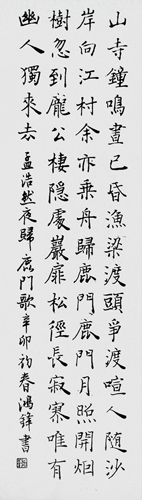 山寺鐘鳴晝已昏漁梁渡頭爭渡喧人隨沙
岸向江村余亦乘舟歸鹿門鹿門月照開烟
樹忽到龐公棲隱處巖扉松徑長寂寥唯有
幽人獨來去 孟浩然夜歸鹿門歌辛卯初春鴻鋒書